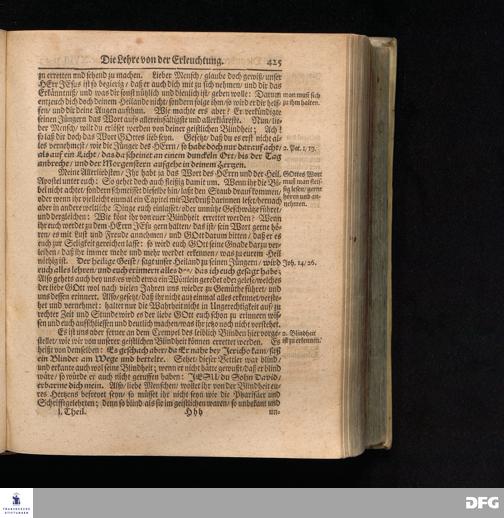 Die Lehre von der Erleuchtung. 425
zu erretten und sehend zu machen. Lieber Mensch/ glaube doch gewiß/ unser
HErr JEsus ist so begierig/ daß er auch dich mit zu sich nehmen/ und dir das
Erkäntniß/ und was dir sonst nützlich und dienlich ist/ geben wolle: Darum
entzeuch dich doch deinem Heilande nicht/ sondern folge ihm/ so wird er dir helf-
fen/ und dir deine Augen aufthun. Wie machte ers aber? Er verkündigte
seinen Jüngern das Wort aufs allereinfältigste und allerklärste. Nun/ lie-
ber Mensch/ wilt du erlöset werden von deiner geistlichen Blindheit; Ach!
so laß dir doch das Wort GOttes lieb seyn. Gesetzt/ daß du es erst nicht al-
les vernehmest/ wie die Jünger des HErrn/ so habe doch nur darauf acht/
als auf ein Licht/ das da scheinet an einem dunckeln Ort/ bis der Tag
anbreche/ und der Morgenstern aufgehe in deinem Hertzen.
man muß sich
zu ihm halten.
2. Pet. 1, 19.
Meine Allerliebsten/ Ihr habt ja das Wort des HErrn und der Heil.
Apostel unter euch: So gehet doch auch fleißig damit um. Wenn ihr die Bi-
bel nicht achtet/ sondern schmeisset dieselbe hin/ laßt den Staub drauf kommen/
oder wenn ihr vielleicht einmal ein Capitel mit Verdruß darinnen leset/ hernach
aber in andere weltliche Dinge euch einlasset/ oder unnütze Geschwätze führet/
und dergleichen: Wie könt ihr von eurer Blindheit errettet werden? Wenn
ihr euch werdet zu dem HErrn JEsu gern halten/ das ist/ sein Wort gerne hö-
ren/ es mit Lust und Freude annehmen/ und GOtt darum bitten/ daß er es
euch zur Seligkeit gereichen lasse: so wird euch GOtt seine Gnade darzu ver-
leihen/ daß ihr immer mehr und mehr werdet erkennen/ was zu eurem Heil
nöthig ist. Der heilige Geist/ saget unser Heiland zu seinen Jüngern/ wird
euch alles lehren/ und euch erinnern alles des/ das ich euch gesagt habe:
Also gehets auch bey uns/ es wird etwa ein Wörtlein geredet oder gelesen/ welches
der liebe GOtt wol nach vielen Jahren uns wieder zu Gemüthe führet/ und
uns dessen erinnert. Also/ gesetzt/ daß ihr nicht auf einmal alles erkennet/ verste-
het und vernehmet: haltet nur die Wahrheit nicht in Ungerechtigkeit auf/ zu
rechter Zeit und Stunde wird es der liebe GOtt euch schon zu erinnern wis-
sen und euch aufschliessen und deutlich machen/ was ihr jetzo noch nicht verstehet.
GOttes Wort
muß man fleis-
sig lesen/ gerne
hören und an-
nehmen.
Joh. 14/ 26.
Es ist uns aber ferner an dem Exempel des leiblich Blinden hier vorge-
stellet/ wie wir von unserer geistlichen Blindheit können errettet werden. Es
heißt von demselben: Es geschach aber/ da Er nahe bey Jericho kam/ saß
ein Blinder am Wege und bettelte. Sehet/ dieser Bettler war blind/
und erkante auch wol seine Blindheit; wenn er nicht hätte gewust/ daß er blind
wäre/ so würde er auch nicht geruffen haben: JESU/ du Sohn David/
erbarme dich mein. Also/ liebe Menschen/ wollet ihr von der Blindheit eu-
res Hertzens befreyet seyn/ so müsset ihr nicht seyn wie die Pharisäer und
Schrifftgelehrten; denn so blind als sie im geistlichen waren/ so unbekant und
2. Blindheit
ist zu erkennen/
I. Theil. Hhh un-
DFG